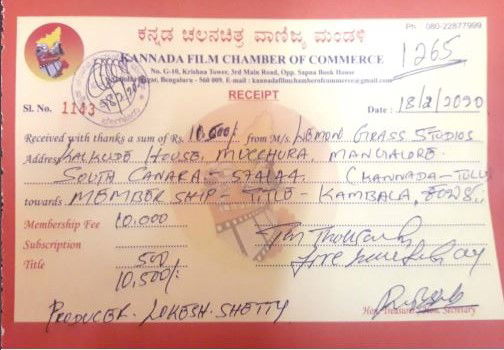 ಕನ್ನಡ ಚಲನಚಿತ್ರ ವಾಣಿಜ್ಯ ಮಂಡಳಿ
Ph : 080-22877999
KANNADA FILM CHAMBER OF COMMERCE
1265
No. G-10, Krishna Tower, 3rd Main Road, Opp. Sapna Book House
Bengaluru - 560 009. E-mail : kannadafilmchamberofcommerce@gmail.com
RECEIPT
Sl. No. 1143
Date : 18/2/2020
Received with thanks a sum of Rs. 10,500/- from M/s. LEMON GRASS STUDIOS
Address KALKUDE HOUSE, MUCCHURA, MANGALORE.
SOUTH CANARA - 574144. (KANNADA - TULU
towards MEMBER SHIP - TITLE - KAMBALA,
Membership Fee 10,000
Ten Thousand
Subscription
Five hundred only
Title 500
10,500/-
PRODUCER. LOKESH. SHETTY
Hon. Treasurer / Hon. Secretary